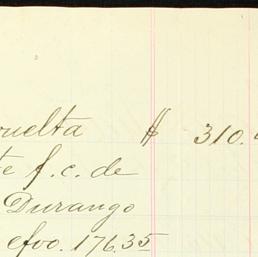 vuelta $ 310.
te f. c. de
Durango
efvo. 176.35